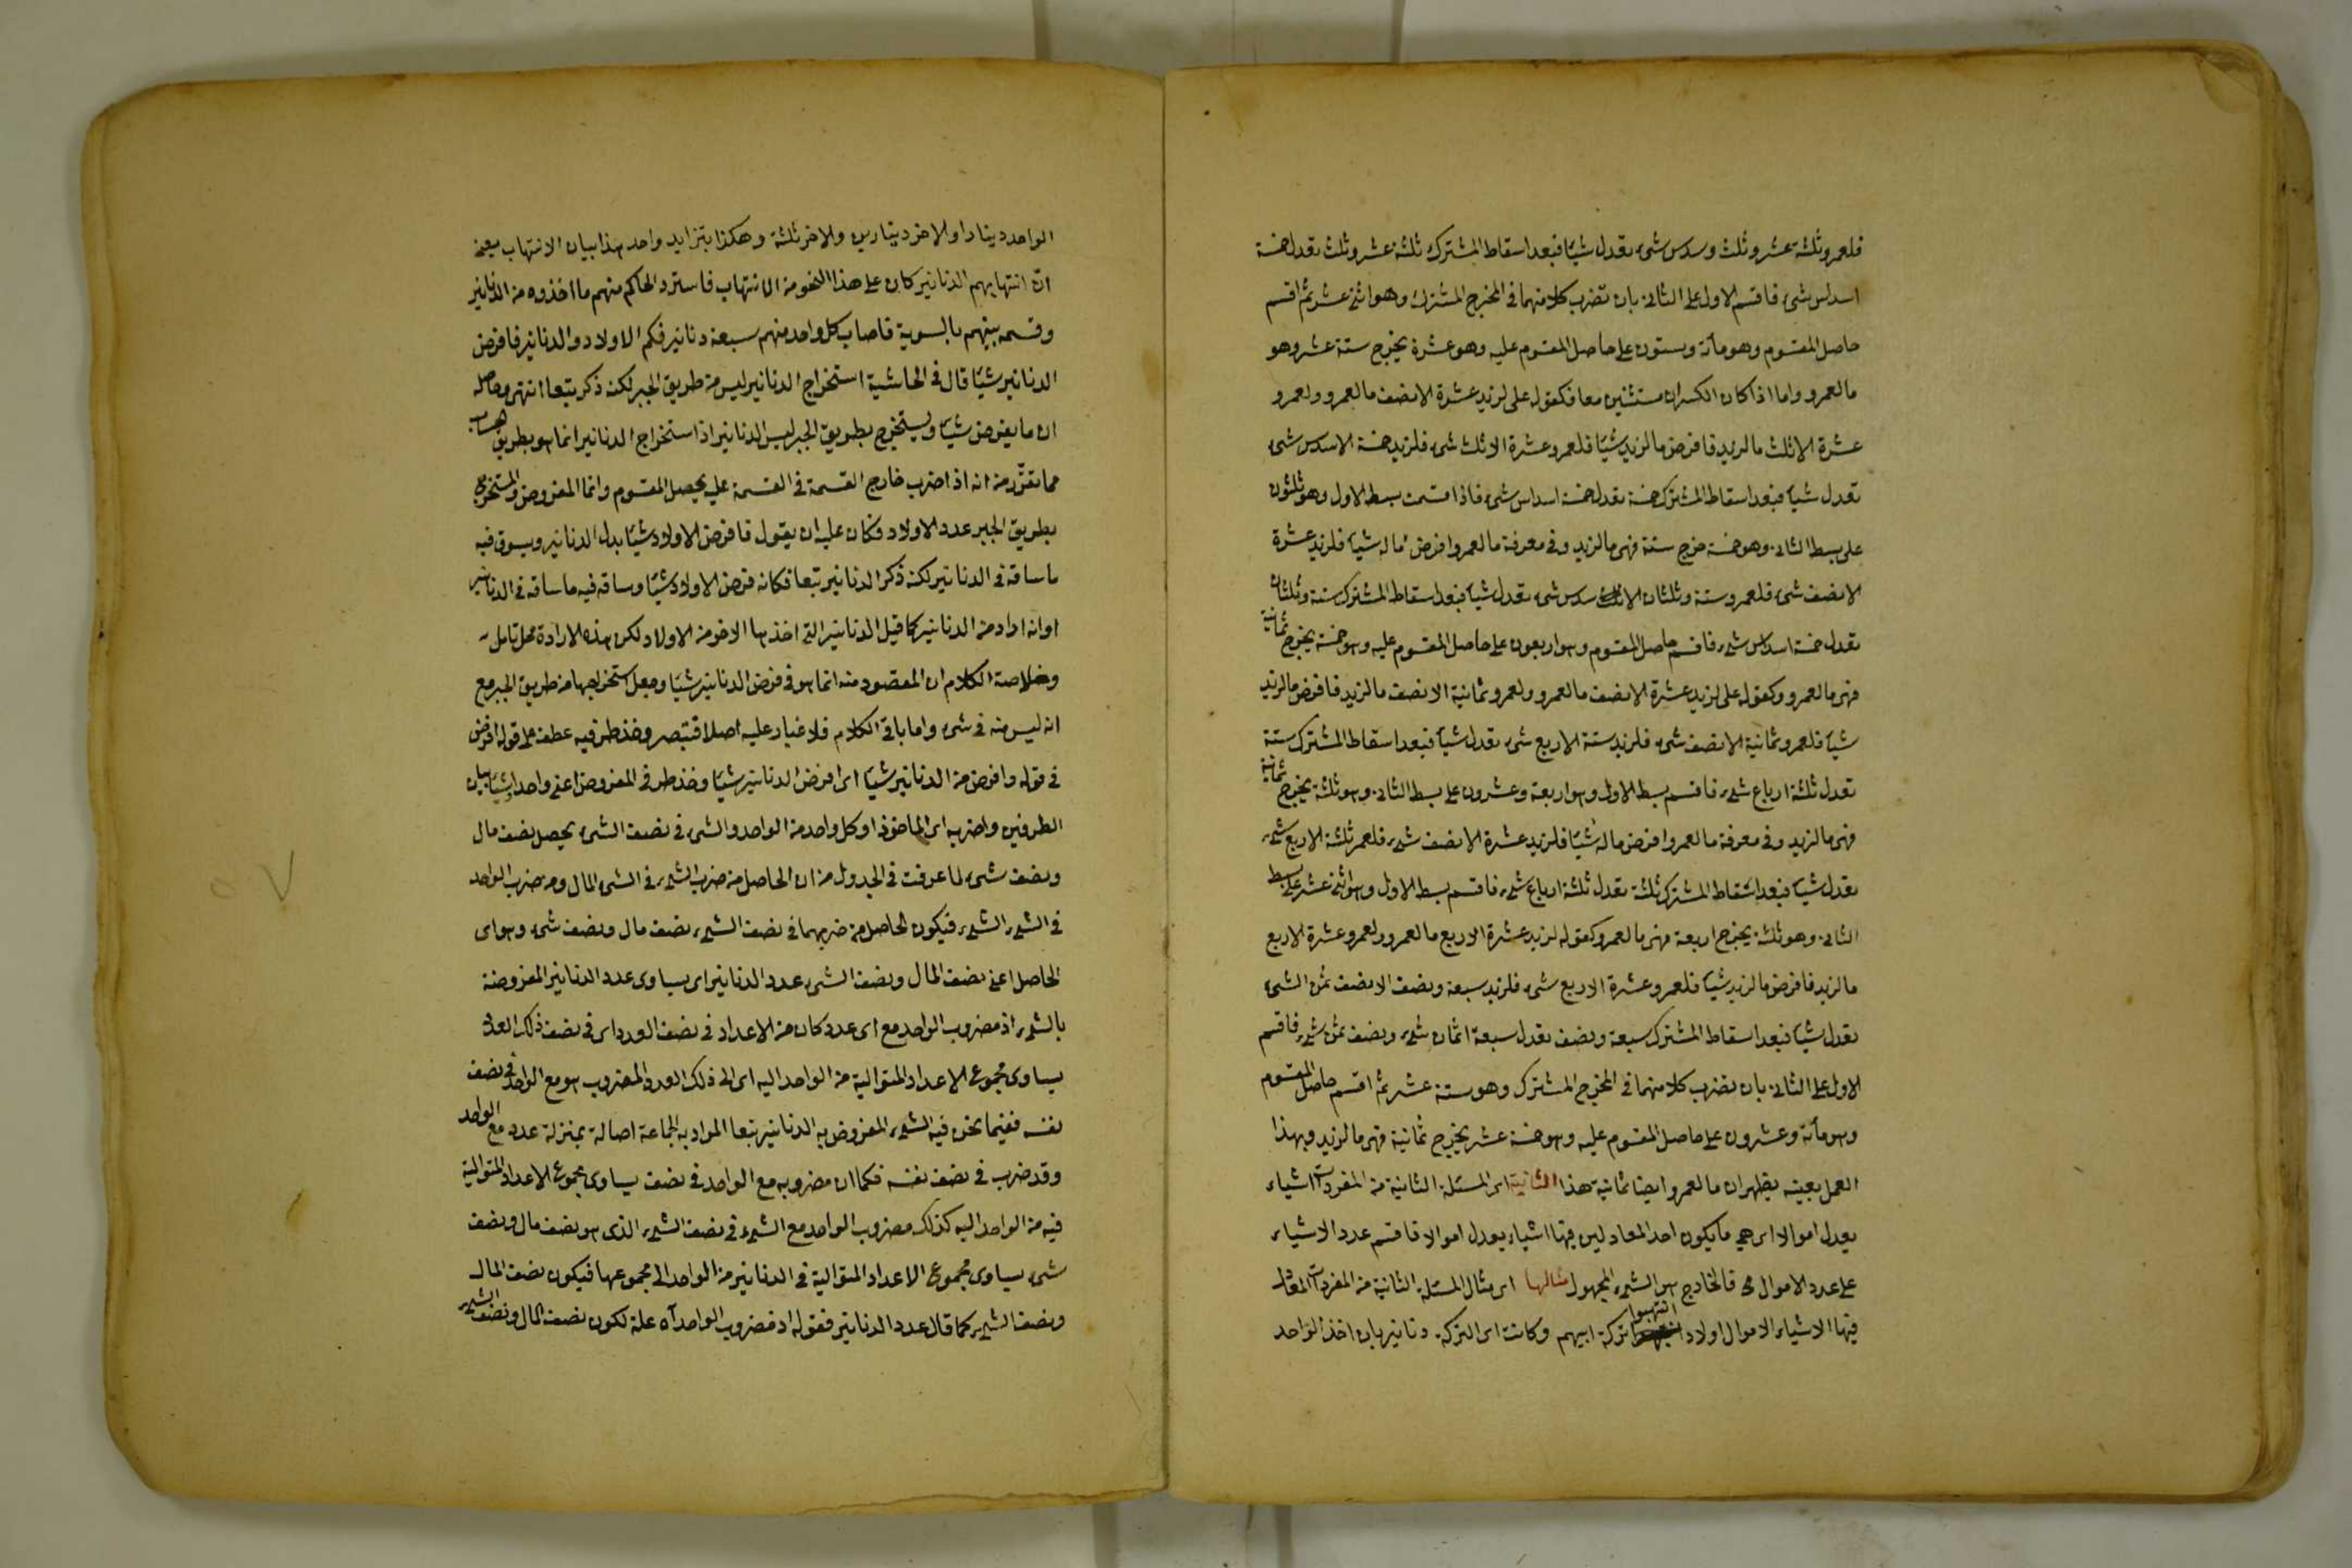 فلعمرو ثلثة عشر وثلث وسدس شئ تعدل شيئا فبعد اسقاط المشترك ثلثة عشر وثلث تعدل خمسة
اسداس شئ فاقسم الاول على الثانى بان تضرب كلا منهما فى المخرج المشترك وهو اثنى عشر ثم اقسم
حاصل المقسوم وهو مأتة وستون على حاصل المقسوم عليه وهو عشرة يخرج ستة عشر وهو
ما لعمرو واما اذا كان الكسران مستثنين معا فكقوله على لزيد عشرة الا نصف ما لعمرو ولعمرو
عشرة الا ثلث ما لزيد فافرض ما لزيد شيئا فلعمرو عشرة الا ثلث شئ فلزيد خمسة الا سدس شئ
تعدل شيئا فبعد اسقاط المشترك خمسة تعدل خمسة اسداس شئ فاذا قسمت بسط الاول وهو ثلثون
على بسط الثانى وهو خمسة خرج ستة فهى ما لزيد وفى معرفة ما لعمرو افرض ما له شيئا فلزيد عشرة
الا نصف شئ فلعمرو ستة وثلثان الا سدس شئ تعدل شيئا فبعد اسقاط المشترك ستة وثلثان
تعدل خمسة اسداس شئ فاقسم حاصل المقسوم وهو اربعون على حاصل المقسوم عليه وهو خمسة يخرج ثمانية
فهى ما لعمرو وكقوله على لزيد عشرة الا نصف ما لعمرو ولعمرو ثمانية الا نصف ما لزيد فافرض ما لزيد
شيئا فلعمرو ثمانية الا نصف شئ فلزيد ستة الا ربع شئ تعدل شيئا فبعد اسقاط المشترك ستة
تعدل ثلثة ارباع شئ فاقسم بسط الاول وهو اربعة وعشرون على بسط الثانى وهو ثلثة يخرج ثمانية
فهى ما لزيد وفى معرفة ما لعمرو افرض ما له شيئا فلزيد عشرة الا نصف شئ فلعمر ثلثة الا ربع شئ
تعدل شيئا فبعد اسقاط المشترك ثلثة تعدل ثلثة ارباع شئ فاقسم بسط الاول وهو اثنى عشر على بسط
الثانى وهو ثلثة يخرج اربعة فهى ما لعمرو وكقوله لزيد عشرة الا ربع ما لعمرو ولعمرو عشرة الا ربع
ما لزيد فافرض ما لزيد شيئا فلعمرو عشرة الا ربع شئ فلزيد سبعة ونصف الا نصف ثمن الشئ
تعدل شيئا فبعد اسقاط المشترك سبعة ونصف تعدل سبعة اثمان شئ ونصف ثمن شئ فاقسم
الاول على الثانى بان تضرب كلا منهما فى المخرج المشترك وهو ستة عشر ثم اقسم حاصل المقسوم
وهو مأتة وعشرون على حاصل المقسوم عليه وهو خمسة عشر يخرج ثمانية فهى ما لزيد وبهذا
العمل بعينه يظهر ان ما لعمرو ايضا ثمانية هذا الثانية اى المسئلة الثانية من المفردات اشياء
يعدل اموالا اى هى ما يكون احد المعادلين فيها اشياء يعدل اموالا فاقسم عدد الاشياء
على عدد الاموال فالخارج هو الشئ المجهول مثالها اى مثال المسئلة الثانية من المفردات المعادل
فيها الاشياء الاموال اولاد انتهبوا تركة ابيهم وكانت اى التركة دنانير بان اخذ الواحد
الواحد دينارا والاخر دينارين والاخر ثلثة وهكذا بتزايد واحد هذا بيان الانتهاب يعنى
ان انتهابهم الدنانير كان على هذا النحو من الانتهاب فاسترد الحاكم منهم ما اخذوه من الدنانير
وقسمه بينهم بالسوية فاصاب كل واحد منهم سبعة دنانير فكم الاولاد والدنانير فافرض
الدنانير شيئا قال فى الحاشية استخراج الدنانير ليس من طريق الجبر لكنه ذكر تبعا انتهى وحاصله
ان ما يفرض شيئا ويستخرج بطريق الجبر ليس الدنانير اذ استخراج الدنانير انما هو بطريق الحساب
مما تقرّر من انه اذا ضرب خارج القسمة فى القسمة عليه يحصل المقسوم وانما المفروض والمستخرج
بطريق الجبر عدد الاولاد فكان عليه ان يقول فافرض الاولاد شيئا بدل الدنانير ويسوق فيه
ما ساقه فى الدنانير لكنه ذكر الدنانير تبعا فكانه فرض الاولاد شيئا وساق فيه ما ساقه فى الدنانير
او انه اراد من الدنانير كما قيل الدنانير التى اخذها الاخر من الاولاد لكن هذه الارادة محل تامل
وخلاصة الكلام ان المقصود منه انما هو فى فرض الدنانير شيئا وجعل استخراجها من طريق الجبر مع
انه ليس منه فى شئ واما باقى الكلام فلا غبار عليه اصلا فتبصر وخذ طرفيه عطف على قوله افرض
فى قوله وافرض من الدنانير شيئا اى افرض الدنانير شيئا وخذ طرفى المفروض اعنى واحدا وشيئا بيان
الطرفين واضربه اى الماخوذ او كل واحد من الواحد والشئ فى نصف الشئ يحصل نصف مال
ونصف شئ لما عرفت فى الجدول من ان الحاصل من ضرب الشئ فى الشئ المال ومن ضرب الواحد
فى الشئ الشئ فيكون الحاصل من ضربهما فى نصف الشئ نصف مال ونصف شئ وهو اى
الحاصل اعنى نصف المال ونصف الشئ عدد الدنانير اى يساوى عدد الدنانير المفروضة
بالشئ اذ مضروب الواحد مع اى عدد كان من الاعداد فى نصف العدد اى فى نصف ذلك العدد
يساوى مجموع الاعداد المتوالية من الواحد اليه اى الى ذلك العدد المضروب هو مع الواحد فى نصف
نفسه ففيما نحن فيه الشئ المفروض به الدنانير تبعا المراد به الجماعة اصالة بمنزلة عدد مع الواحد
وقد ضرب فى نصف نفسه فكما ان مضروبه مع الواحد فى نصف يساوى مجموع الاعداد المتوالية
فيه من الواحد اليه كذلك مضروب الواحد مع الشئ فى نصف الشئ الذى هو نصف مال ونصف
شئ يساوى مجموع الاعداد المتوالية فى الدنانير من الواحد الى مجموعها فيكون نصف المال
ونصف الشئ كما قال عدد الدنانير فقوله اذ مضروب الواحد آه علة لكون نصف المال ونصف الشئ